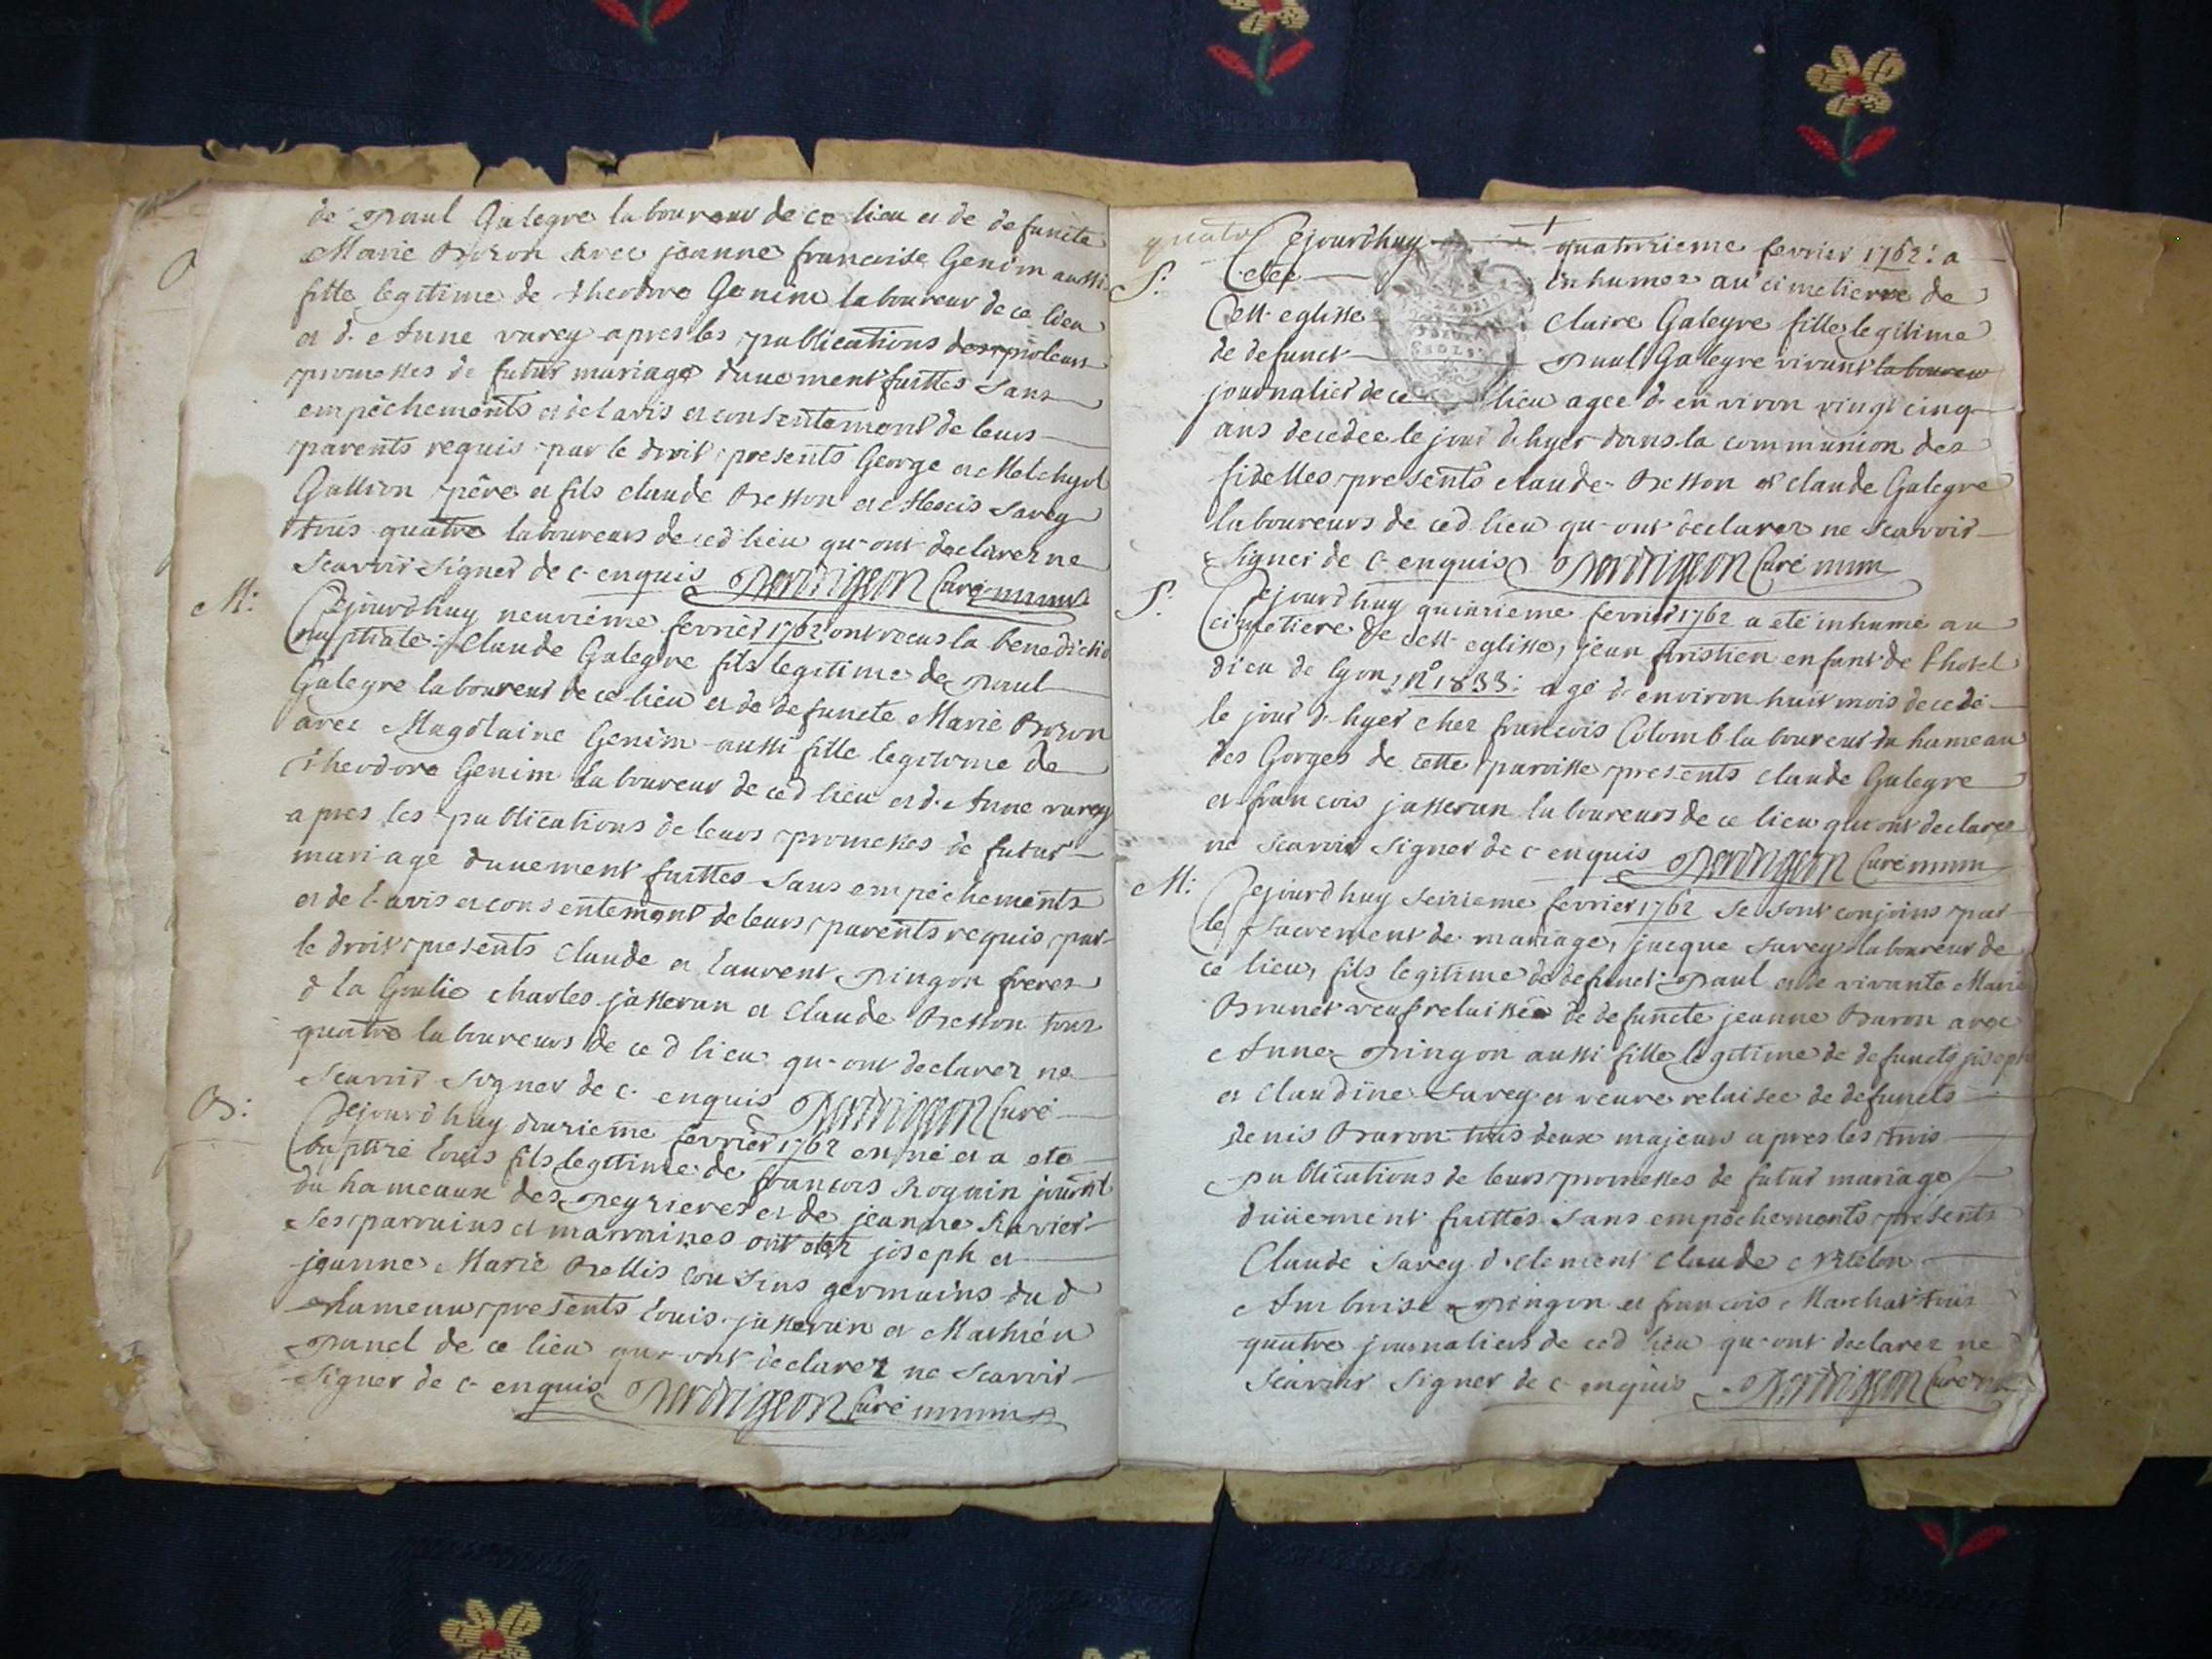 de paul Galegre laboureur de ce lieu et de defuncte
Marie Boron avec jeanne francoise Genim aussi
fille legitime de theodore Genim laboureur de ce lieu
et d. Anne varey apres les publications de leurs
promesses de futur mariage duuement faittes sans
empêchements et de l avis et consentement de leurs
parents requis par le droit presents George et Melchyol
Gallion père et fils claude Besson et Alexis Sarey
tous quatre laboureurs de ced lieu qu-ont declarez ne
Scavoir Signer de c- enquis Perdrigeon Curé
M:
Cejourdhuy neuvième fevrier 1762 ont receus la benedictio
nuptiale: Claude Galegre fils legitime de paul
Galegre laboureur de ce lieu et de defuncte Marie Boron
avec Magdlaine Genim aussi fille legitime de
theodore Genim laboureur de ced lieu et d. Anne varey
apres les publications de leurs promesses de futur
mariage duuement faittes Sans empêchements
et de l-avis et consentement de leurs parents requis par
le droit presents Claude et laurent pingon freres
d la Goulie charles jasseran et Claude Besson tous
quatre laboureurs de ce d lieu qu-ont declarez ne
Scavoir Signer de c- enquis Perdrigeon Curé
B:
Cejourd huy douzieme fevrier 1762 est né et a eté
baptizé louis fils legitime de francois Roquin journl
du hameaux des peyrieres et de jeanne Ravier
Ses parrains et marraines ont etez joseph et
jeanne Marie Bellis cousins germains du d
hameau presents louis jasseran et Mathieu
panel de ce lieu qu-ont declarez ne Scavoir
Signer de c- enquis Perdrigeon Curé
quatre
S:
Cejourdhuy quatorzieme fevrier 1762: a
etée inhumez au cimetierre de
Cett-eglisse Claire Galegre fille legitime
de defunct paul Galegre vivant laboureur
journalier de ce lieu agee d- environ vingt cinq
ans decedee le jour d-hyer dans la communion des
fidelles presents claude Besson et claude Galegre
laboureurs de ced lieu qu-ont declarez ne Scavoir
Signer de c- enquis Perdrigeon Curé
S:
Cejourd huy quinzieme fevrier 1762 a eté inhumé au
cimetiere de cett-eglisse, jean cristien enfant de l hotel
dieu de lyon, n° 1833: agé d-environ huit mois decedé
le jour d-hyer chez francois Colomb laboureur du hameau
des Gorges de cette paroisse presents claude Galegre
et francois jasseran laboureurs de ce lieu qui ont declarez
ne Scavoir Signer de c- enquis Perdrigeon Curé
M:
Cejourdhuy Seizieme fevrier 1762 se sont conjoins par
le Sacrement de mariage, jacque Sarey laboureur de
ce lieu, fils legitime de defunct paul et de vivante Marie
Brunet veuf relaissée de defuncte jeanne Baron avec
Anne pingon aussi fille legitime de defuncts joseph
et Claudine Sarey et veuve relaisee de defuncts
denis Baron tous deux majeurs apres les trois
publications de leurs promesses de futur mariage
duüement faittes Sans empêchements presents
Claude Sarey d. clement Claude
Ambroise pingon et francois Marchat tous
quatre journaliers de ced lieu qu-ont declarez ne
Scavoir Signer de c- enquis Perdrigeon Curé